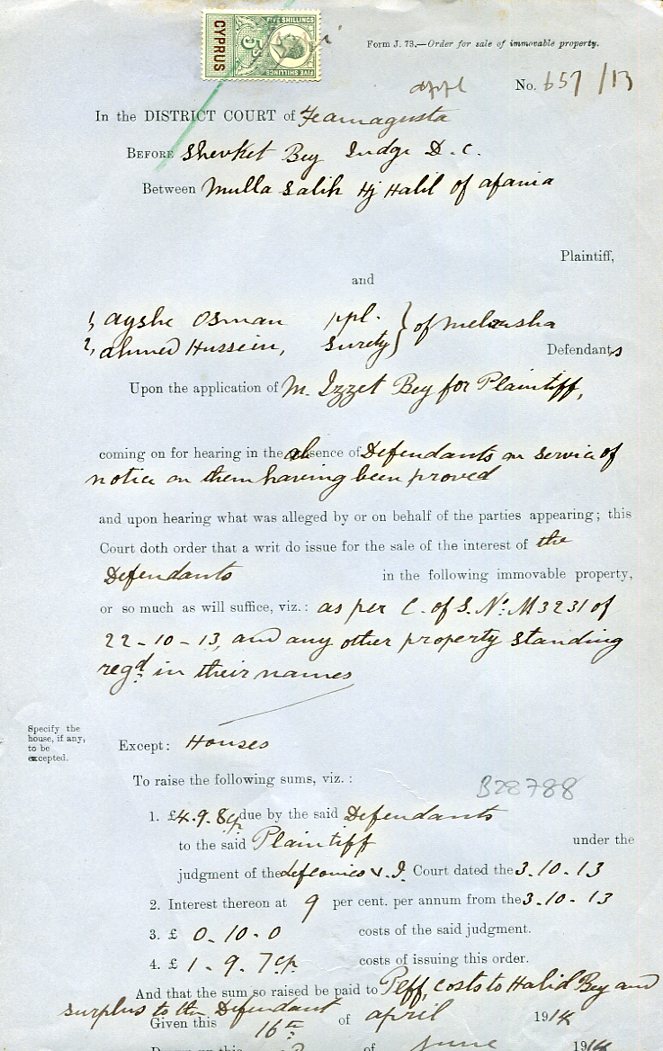 FIVE SHILLINGS
CYPRUS
5s
FIVE SHILLINGS
Form J. 73.—Order for sale of immovable property.
appl No. 657/13
In the DISTRICT COURT of Feamagusta
BEFORE Shevket Bey Judge D.C.
Between Mulla Salih Hj Halil of Afania
Plaintiff,
and
1, Ayshe Osman ppl.
of Melousha
2, Ahmed Hussein, Surety
Defendants
Upon the application of M. Izzet Bey for Plaintiff,
coming on for hearing in the absence of Defendants on service of
notice on them having been proved
and upon hearing what was alleged by or on behalf of the parties appearing; this
Court doth order that a writ do issue for the sale of the interest of the
Defendants in the following immovable property,
or so much as will suffice, viz.: as per C. of S. No: M3231 of
22-10-13, and any other property standing
regd in their names
Specify the
house, if any,
to be
excepted.
Except: Houses
To raise the following sums, viz.:
B28788
1. £4.9.8cp due by the said Defendants
to the said Plaintiff under the
judgment of the Lefconico V.J. Court dated the 3.10.13
2. Interest thereon at 9 per cent. per annum from the 3.10.13
3. £ 0.10.0 costs of the said judgment.
4. £ 1.9.7cp. costs of issuing this order.
And that the sum so raised be paid to Peff, costs to Halid Bey and
surplus to the Defendant
Given this 16th of April 1914
of June 1914